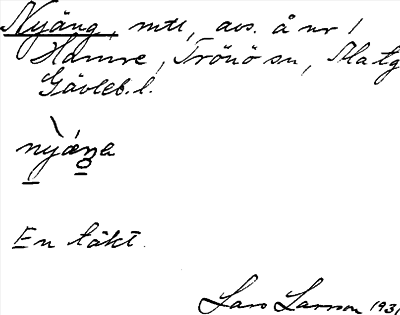 Nyäng, mtl, avs. å nr 1
Hamre, Trönö sn, Matg
Gävleb. l.
En täkt.
Lars Larsson 1931